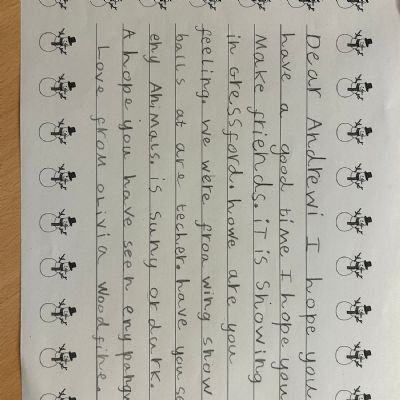 Dear Andrewi I hope you
have a good time I hope you
Make friends. iT is Showing
in Gressford. howe are you
feeling. We were froa wing snow
balls at are techer. have you
eny Animals. is suny or dark.
A hope you have seen eny
Love from olivia woodfine.